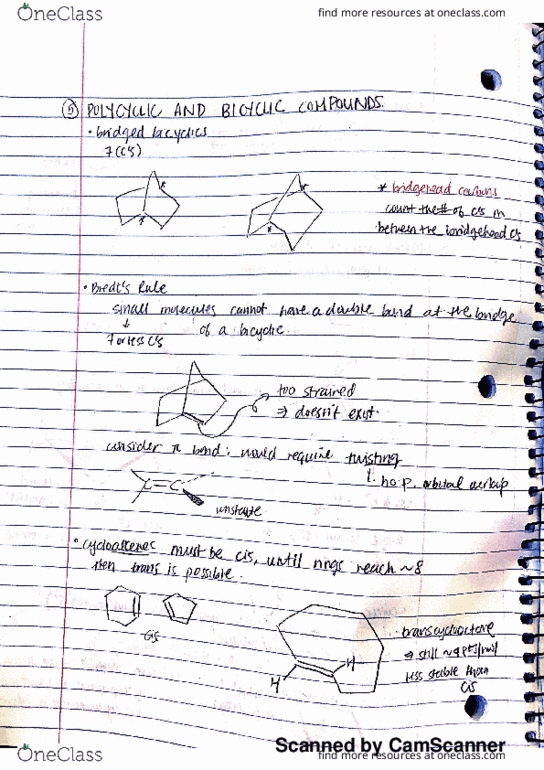 OneClass
find more resources at oneclass.com
⑤ POLYCYCLIC AND BICYCLIC COMPOUNDS
• bridged bicyclics
7 (C's)
* bridgehead carbons
count the # of C's in
between the bridgehead C's
• Bredt's Rule
small molecules cannot have a double bond at the bridge
of a bicyclic.
↓
7 or less C's
too strained
⇒ doesn't exist.
consider π bond: would require twisting
no p orbital overlap
C=C
unstable
• cycloalkenes must be cis, until rings reach ~8
then trans is possible.
cis
transcyclooctene
still ~9
less stable than
cis
H
H
Scanned by CamScanner
OneClass
find more resources at oneclass.com